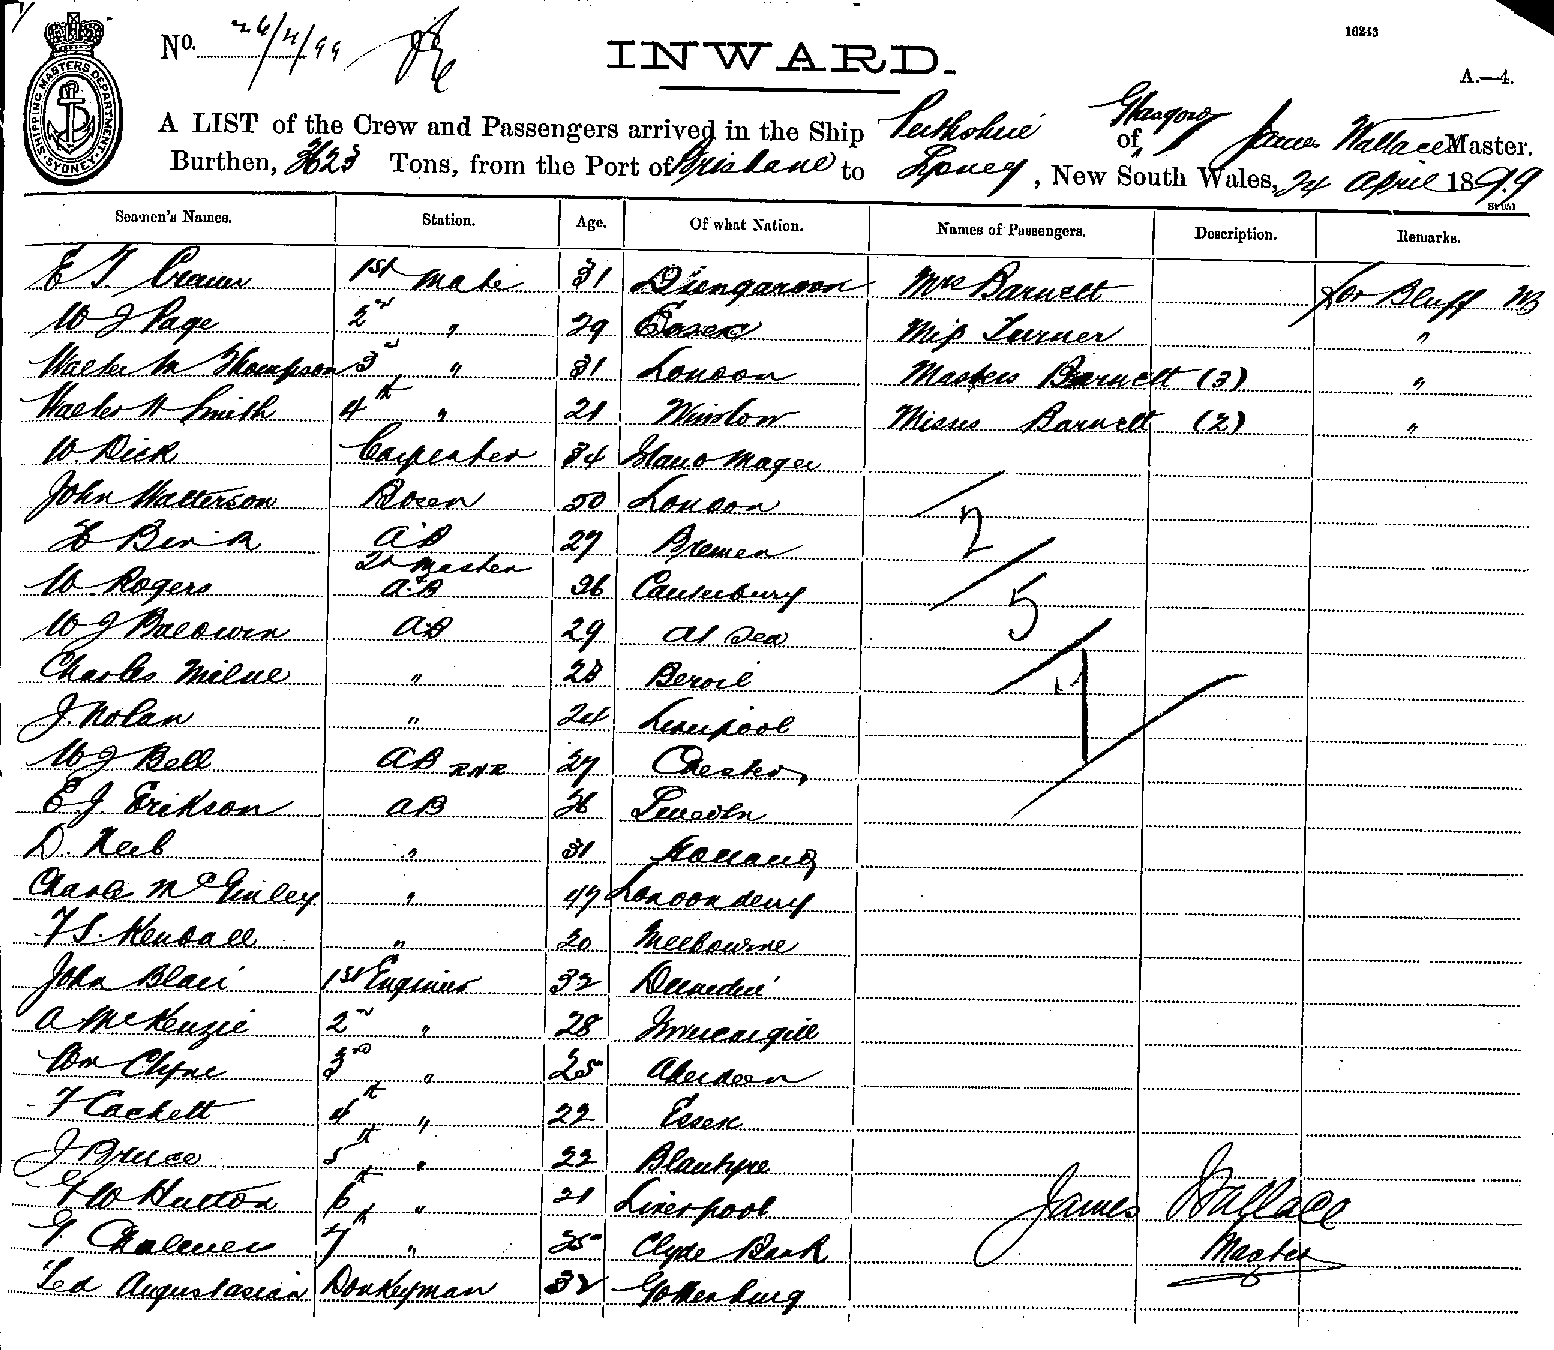 No. 26/4/99
INWARD.
16243
A.—4.
SHIPPING MASTERS DEPARTMENT SYDNEY
A LIST of the Crew and Passengers arrived in the Ship Perthshire of Glasgow James Wallace Master.
Burthen, Tons, from the Port of Brisbane to Sydney, New South Wales, 24 April 1899
Seamen's Names. Station. Age. Of what Nation. Names of Passengers. Description. Remarks.
1st Mate 31 Mrs Barnett for Bluff NZ
W J Page 2nd " 29 Essex Miss Turner "
Walter M Thompson 3rd " 31 London Masters Barnett (3) "
Walter H Smith 4th " 21 Winslow Misses Barnett (2) "
W Dick Carpenter 34
John Watterson Bosen 50 London
2
AB 27 Bremen
2d Master
W. Rogers AB 26 Canterbury
5
W J Baldwin AB 29 At Sea
Charles Milne " 28
J. Nolan " 24 Liverpool
W J Bell AB RNR 27 Chester
E. J. Erikson AB 26 Lincoln
D. "  31
Charles McGinley " 47 Londonderry
F S. Kendall " 20 Melbourne
John Blair 1st Engineer 32 Dunedin
A McKenzie 2nd " 28 Invercargill
Wm Clyne 3rd " 25 Aberdeen
F Cackett 4th " 22 Essex
J Bruce 5th " 22 Blantyre
W Hutton 6th " 21 Liverpool
Chalmers 7th " 25 Clyde Bank
Augustasian Donkeyman 32 Gottenburg
James Wallace
Master